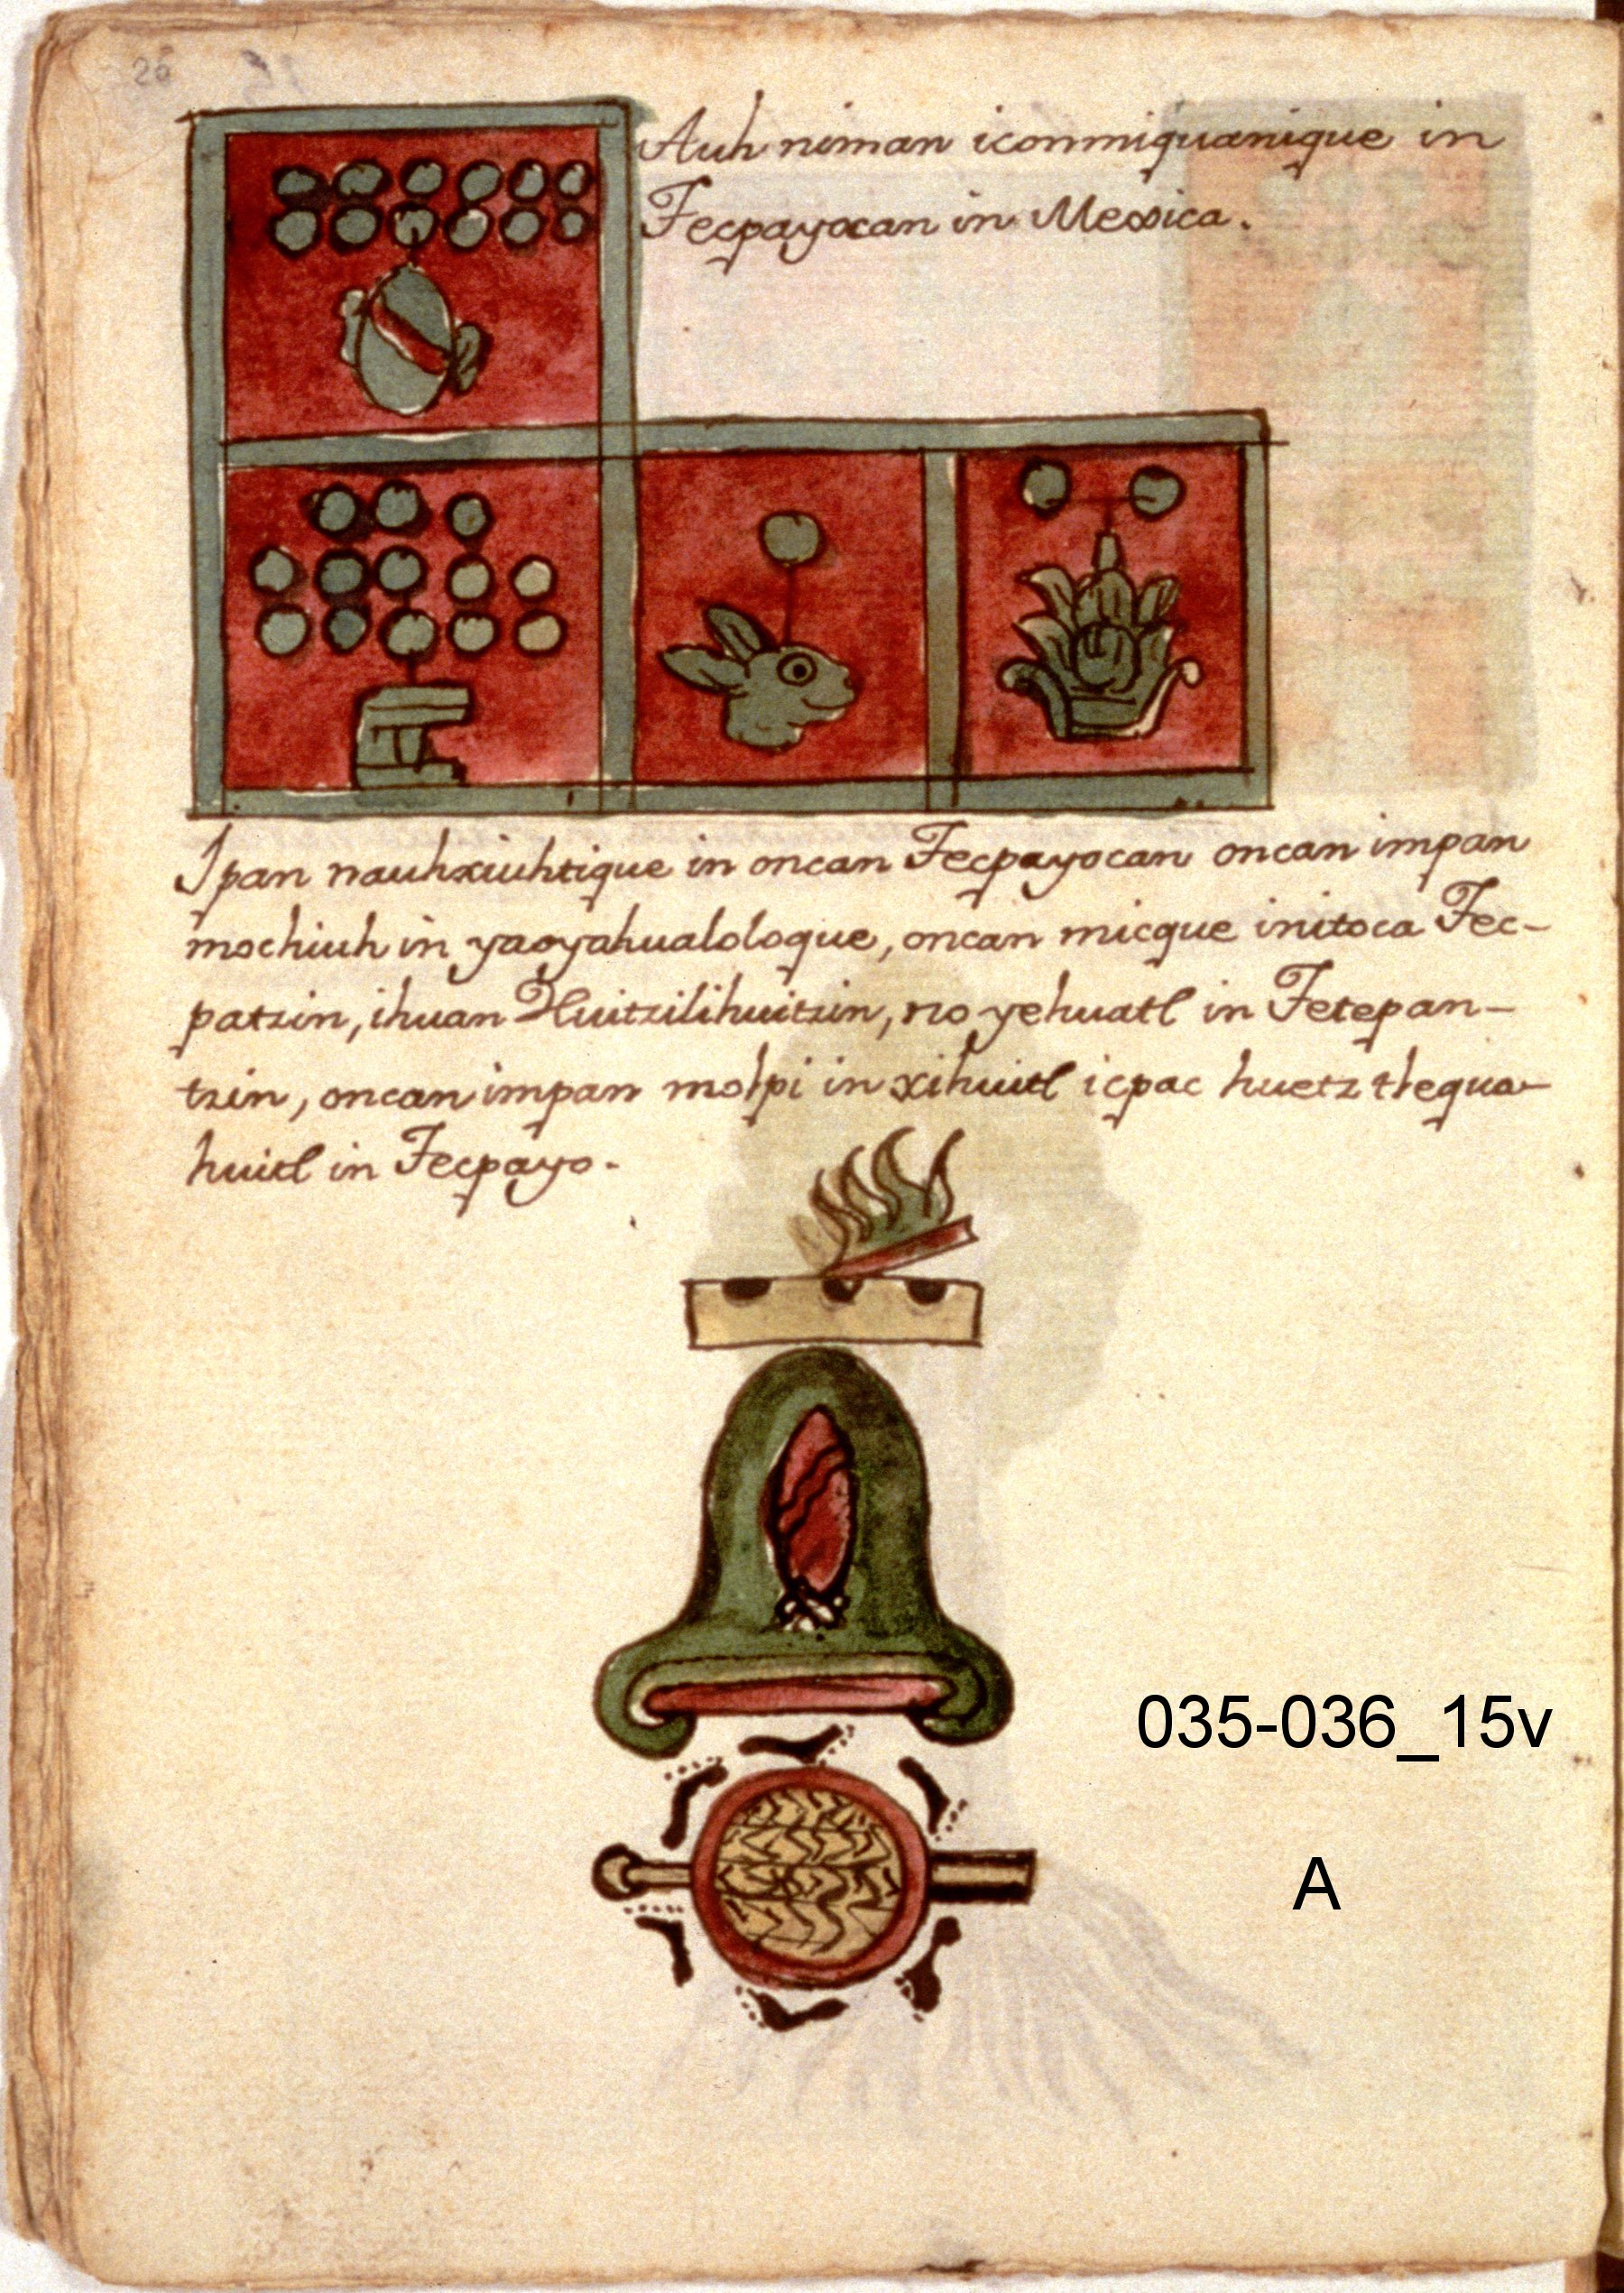 26
Auh niman iconmiquanique in
Tecpayocan in Mexica.
Ipan nauhxiuhtique in oncan Tecpayocan oncan impan
mochiuh in yaoyahualoloque, oncan micque initoca Tec-
patzin, ihuan Huitzilihuitzin, no yehuatl in Tetepan-
tzin, oncan impan molpi in xihuitl icpac huetz tlequa-
huitl in Tecpayo.
035-036_15v
A